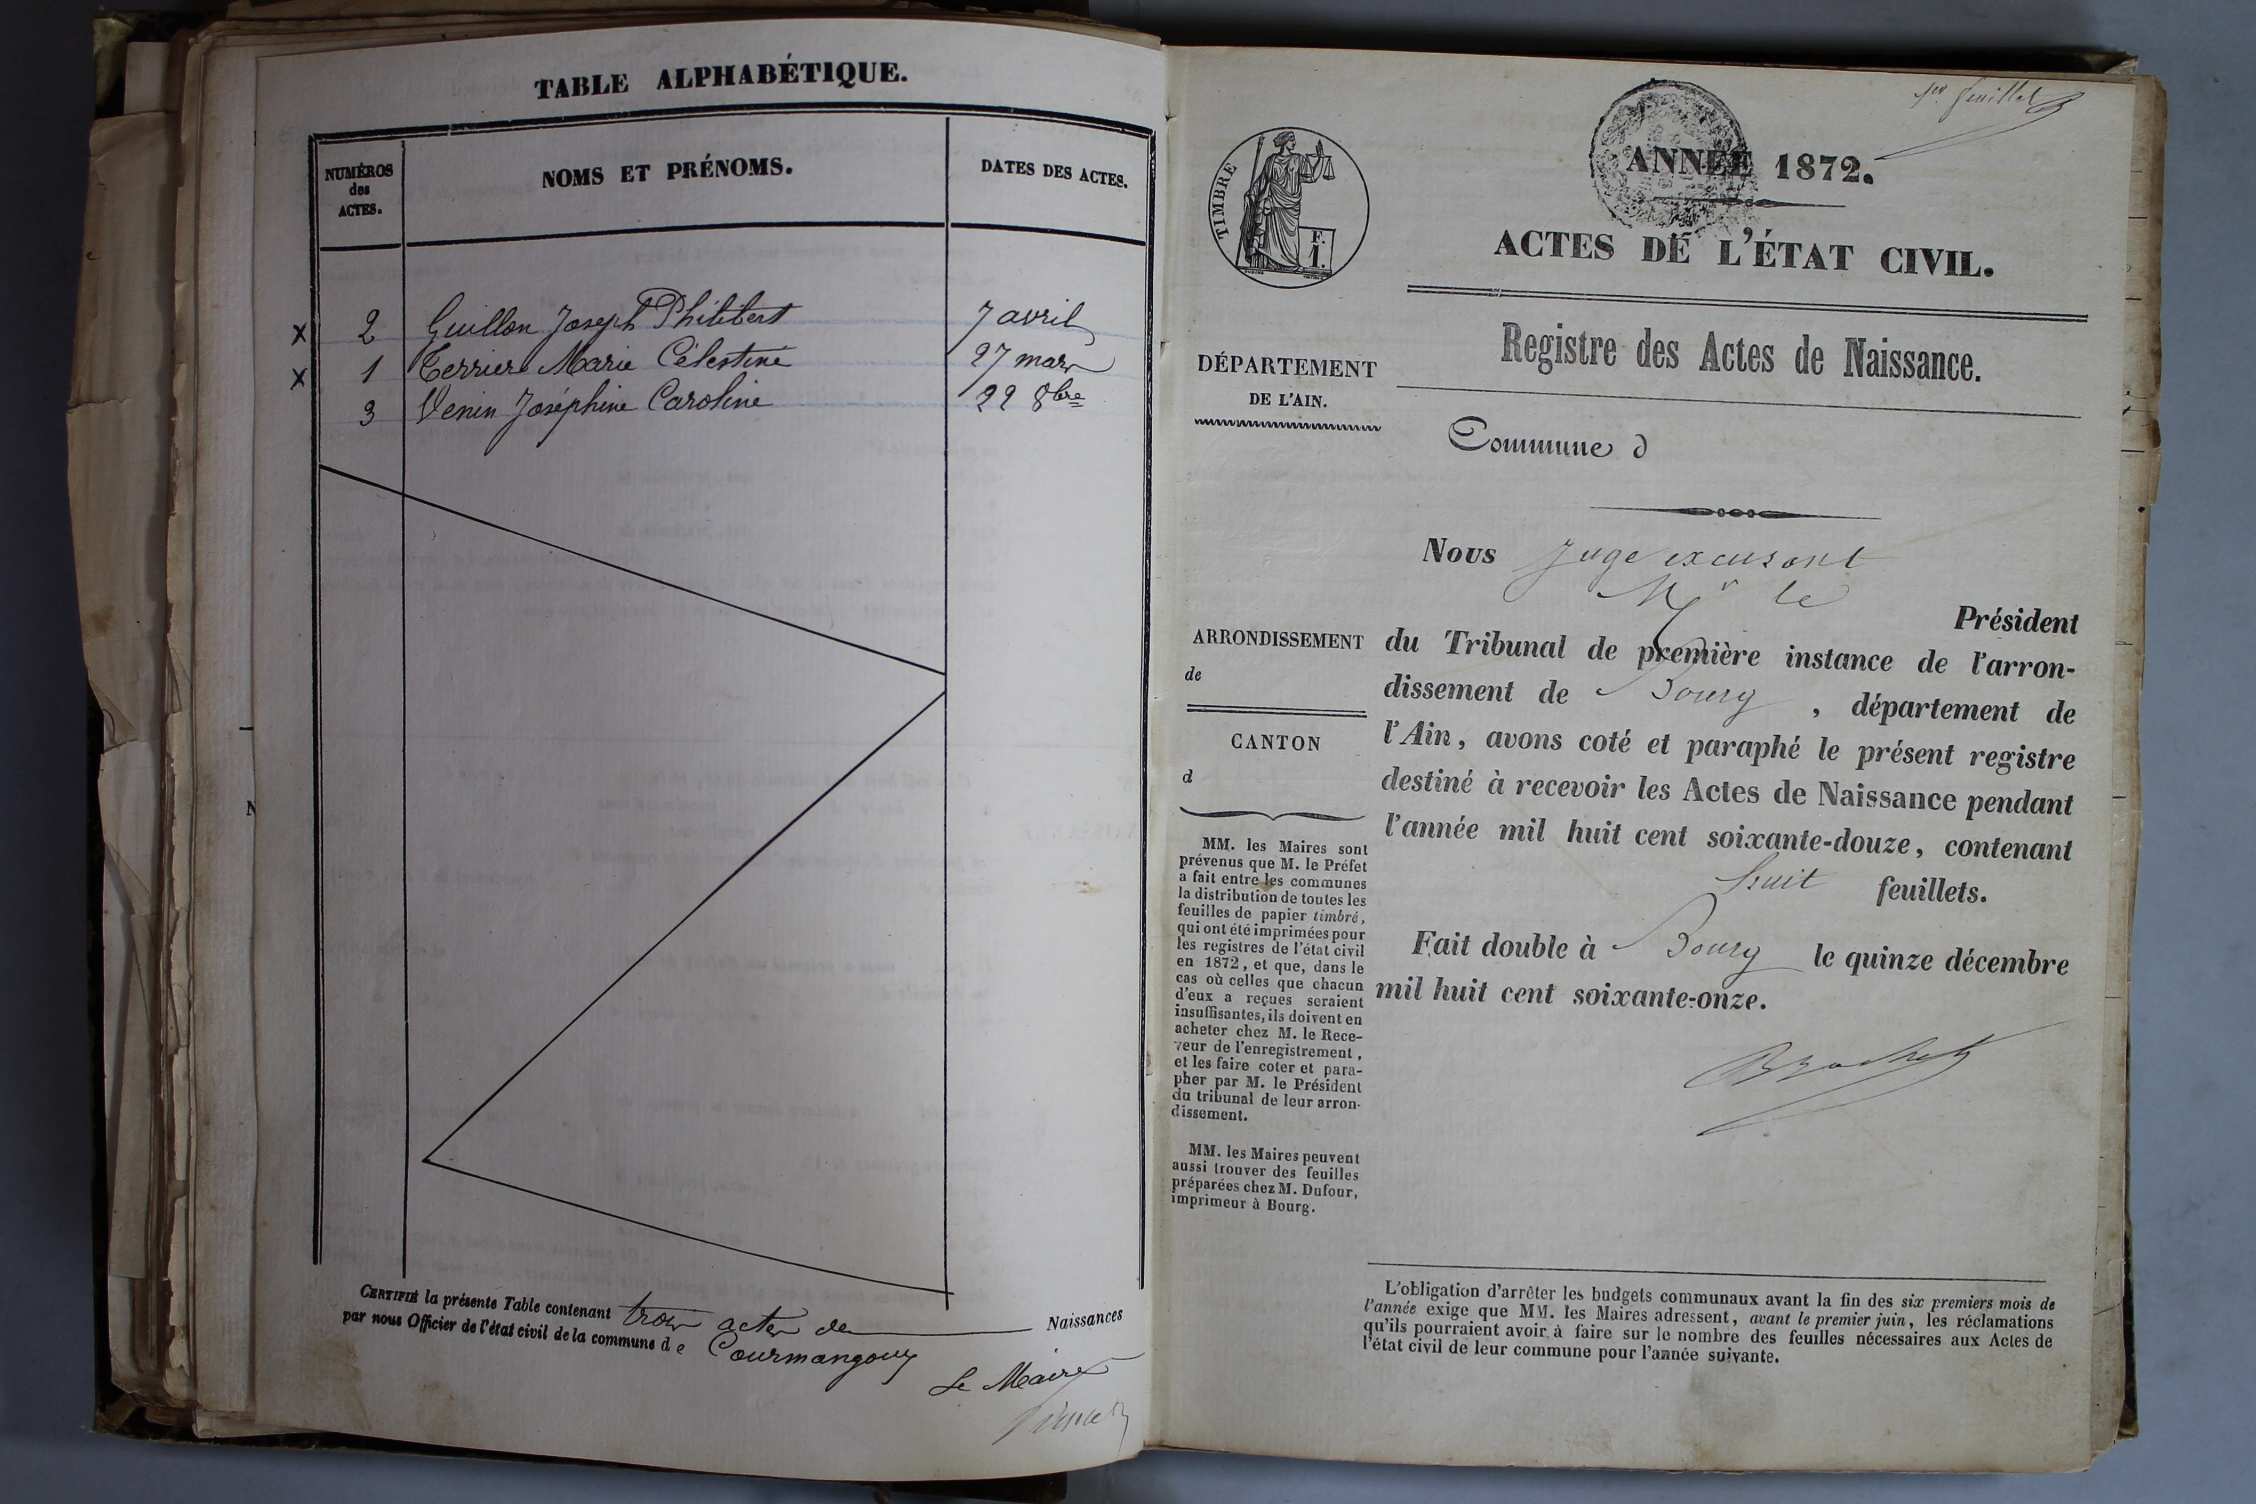 TABLE ALPHABÉTIQUE.
NUMÉROS
des
ACTES.
NOMS ET PRÉNOMS.
DATES DES ACTES.
x 2 Guillon Joseph Philibert 7 avril
x 1 Terrier Marie Célestine 27 mars
3 Venin Joséphine Caroline 22 8bre
CERTIFIÉ la présente Table contenant trois actes de Naissances
par nous Officier de l'état civil de la commune de Courmangoux
Le Maire
1er feuillet
TIMBRE
F.
1.
ANNÉE 1872.
ACTES DE L'ÉTAT CIVIL.
Registre des Actes de Naissance.
DÉPARTEMENT
DE L'AIN.
Commune d
Nous Juge excusant
Mr le
Président
ARRONDISSEMENT
de
CANTON
d
du Tribunal de première instance de l'arron-
dissement de Bourg, département de
l'Ain, avons coté et paraphé le présent registre
destiné à recevoir les Actes de Naissance pendant
l'année mil huit cent soixante-douze, contenant
huit feuillets.
Fait double à Bourg le quinze décembre
mil huit cent soixante-onze.
MM. les Maires sont
prévenus que M. le Préfet
a fait entre les communes
la distribution de toutes les
feuilles de papier timbré,
qui ont été imprimées pour
les registres de l'état civil
en 1872, et que, dans le
cas où celles que chacun
d'eux a reçues seraient
insuffisantes, ils doivent en
acheter chez M. le Rece-
veur de l'enregistrement,
et les faire coter et para-
pher par M. le Président
du tribunal de leur arron-
dissement.
MM. les Maires peuvent
aussi trouver des feuilles
préparées chez M. Dufour,
imprimeur à Bourg.
L'obligation d'arrêter les budgets communaux avant la fin des six premiers mois de
l'année exige que MM. les Maires adressent, avant le premier juin, les réclamations
qu'ils pourraient avoir à faire sur le nombre des feuilles nécessaires aux Actes de
l'état civil de leur commune pour l'année suivante.